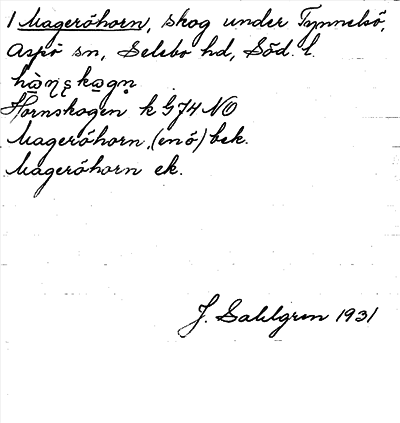 1 Mageröhorn, skog under Tynnelsö,
Aspö sn, Selebo hd, Söd. l.
Hornskogen k G74 NO
Mageröhorn, (en ö) bek.
Mageröhorn ek.
J. Sahlgren 1931